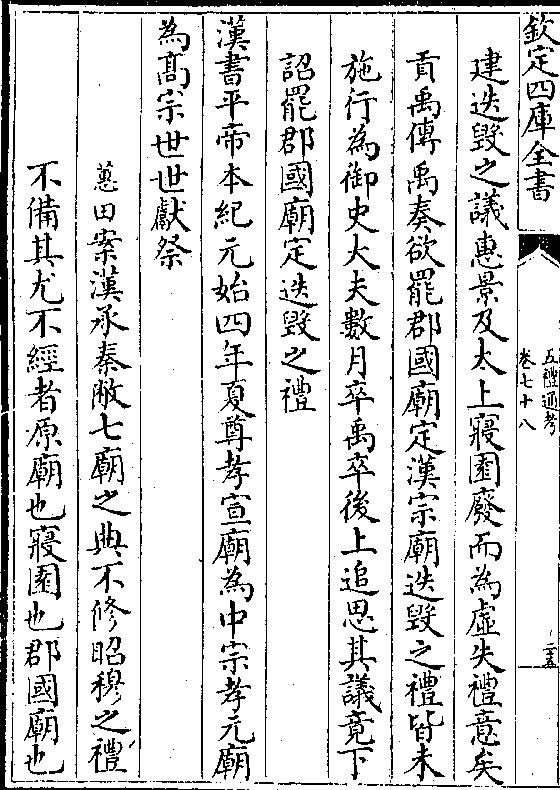 欽定四庫全書
五禮通考
卷七十八
二五
建迭毀之議惠景及太上寢園廢而為虛失禮意矣
貢禹傳禹奏欲罷郡國廟定漢宗廟迭毀之禮皆未
施行為御史大夫數月卒禹卒後上追思其議竟下
詔罷郡國廟定迭毀之禮
漢書平帝本紀元始四年夏尊孝宣廟為中宗孝元廟
為髙宗世世獻祭
蕙田案漢承秦敝七廟之典不修昭穆之禮
不備其尤不經者原廟也寢園也郡國廟也